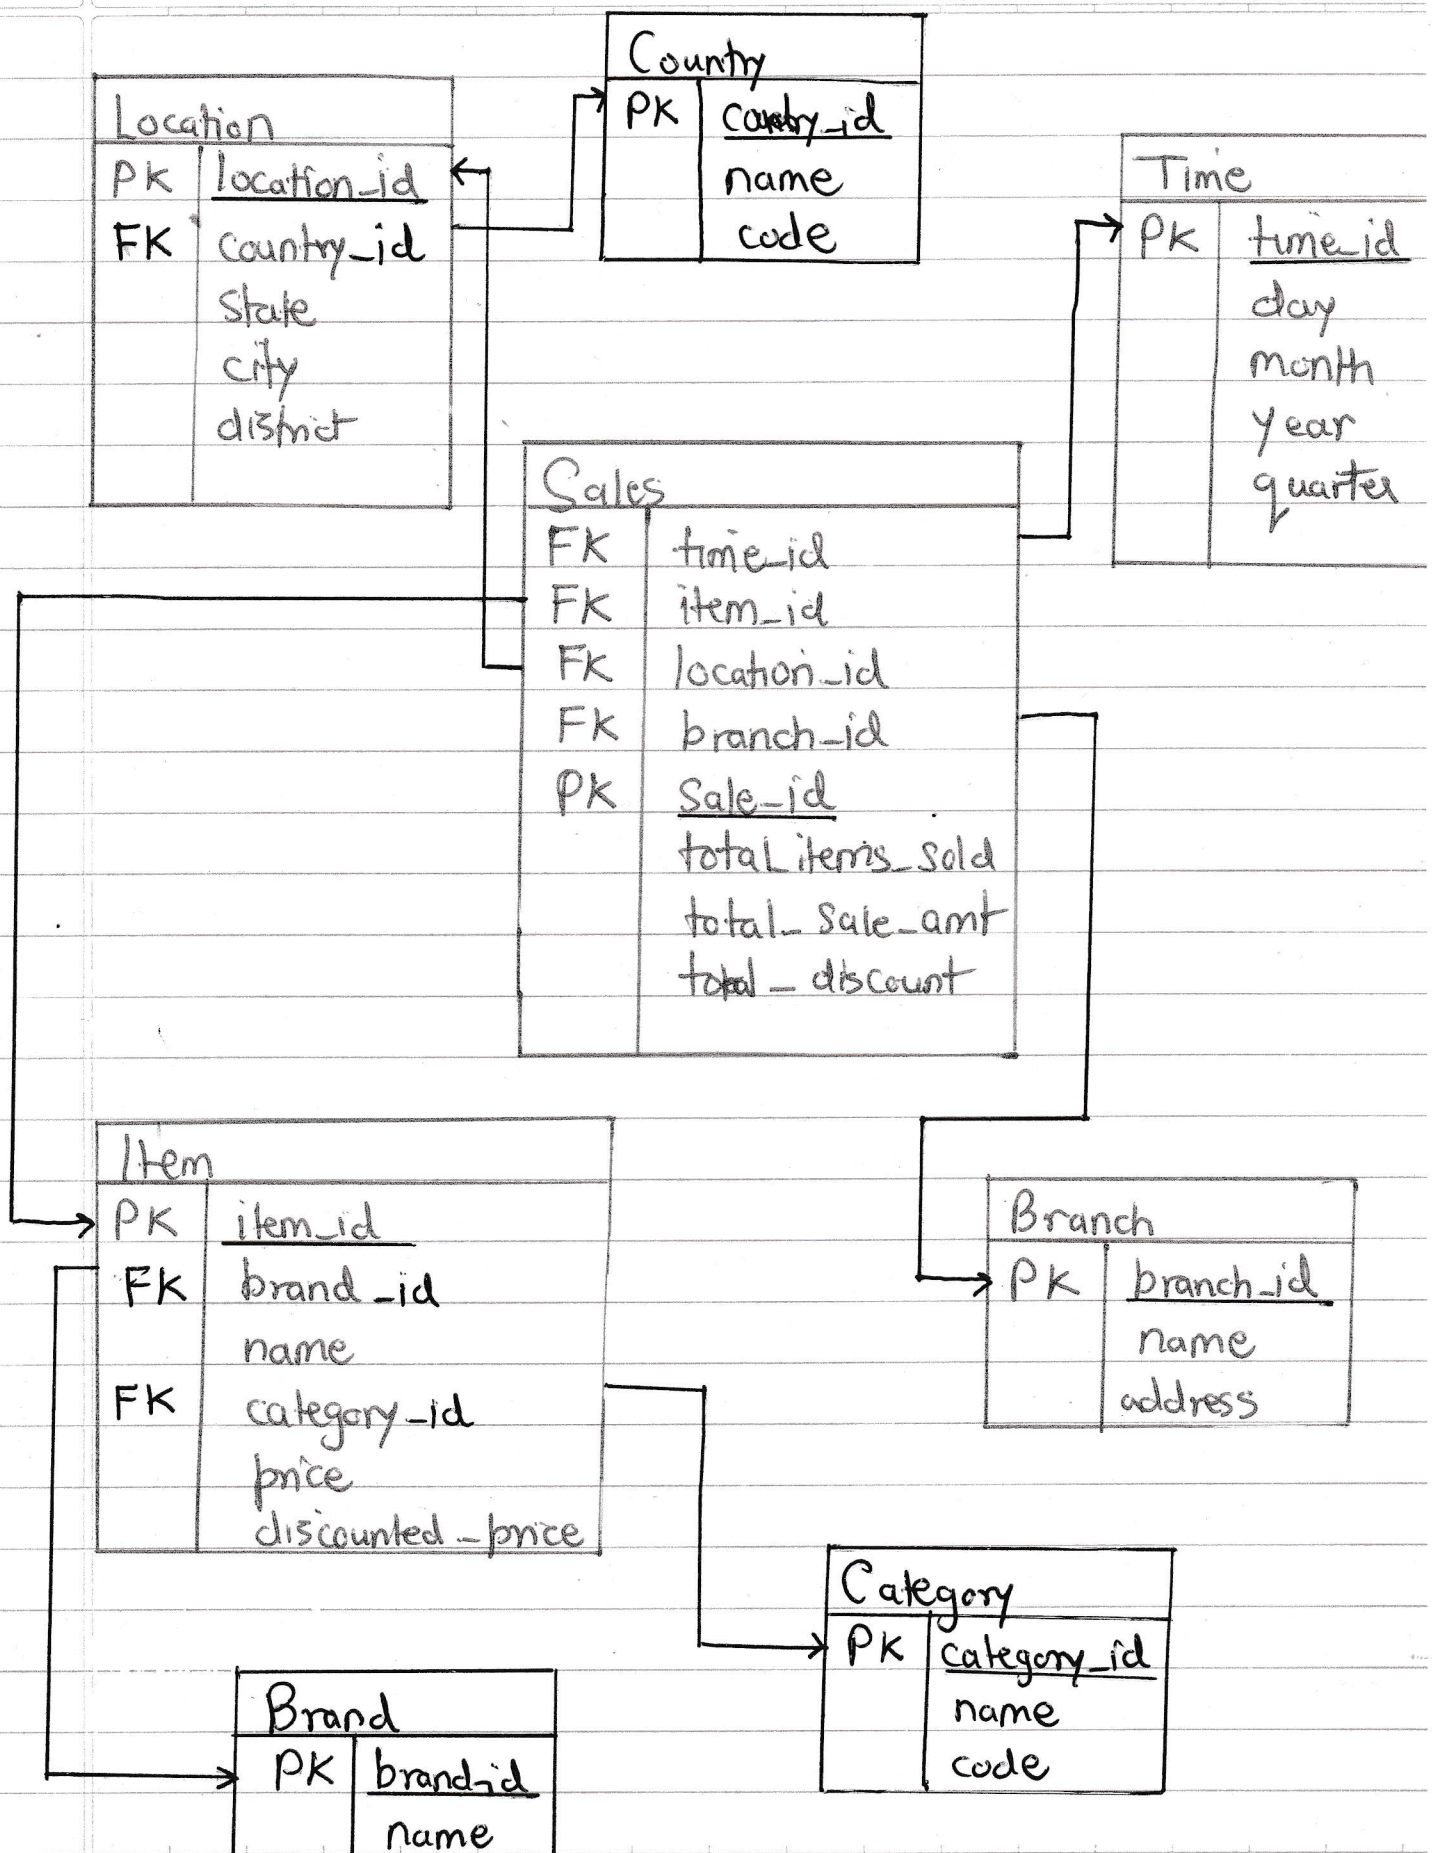 Country
PK country_id
name
code
Location
PK location_id
FK country_id
state
city
district
Time
PK time_id
day
month
year
quarter
Sales
FK time_id
FK item_id
FK location_id
FK branch_id
PK Sale_id
total_items_sold
total_sale_amt
total_discount
Item
PK item_id
FK brand_id
name
FK category_id
price
discounted_price
Branch
PK branch_id
name
address
Category
PK category_id
name
code
Brand
PK brand_id
name